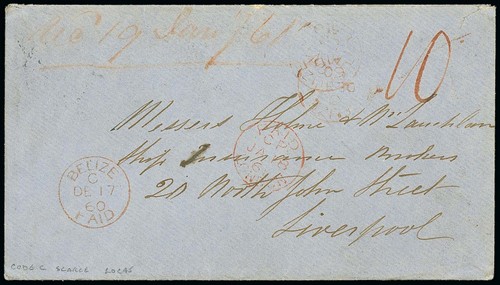 Rec 19 Jan /61
10
Messrs Holme & McLauchlan
Ship Insurance Brokers
20 North John Street
Liverpool
BELIZE
C
DE 17
60
PAID
PAID
JA
CODE C SCARCE